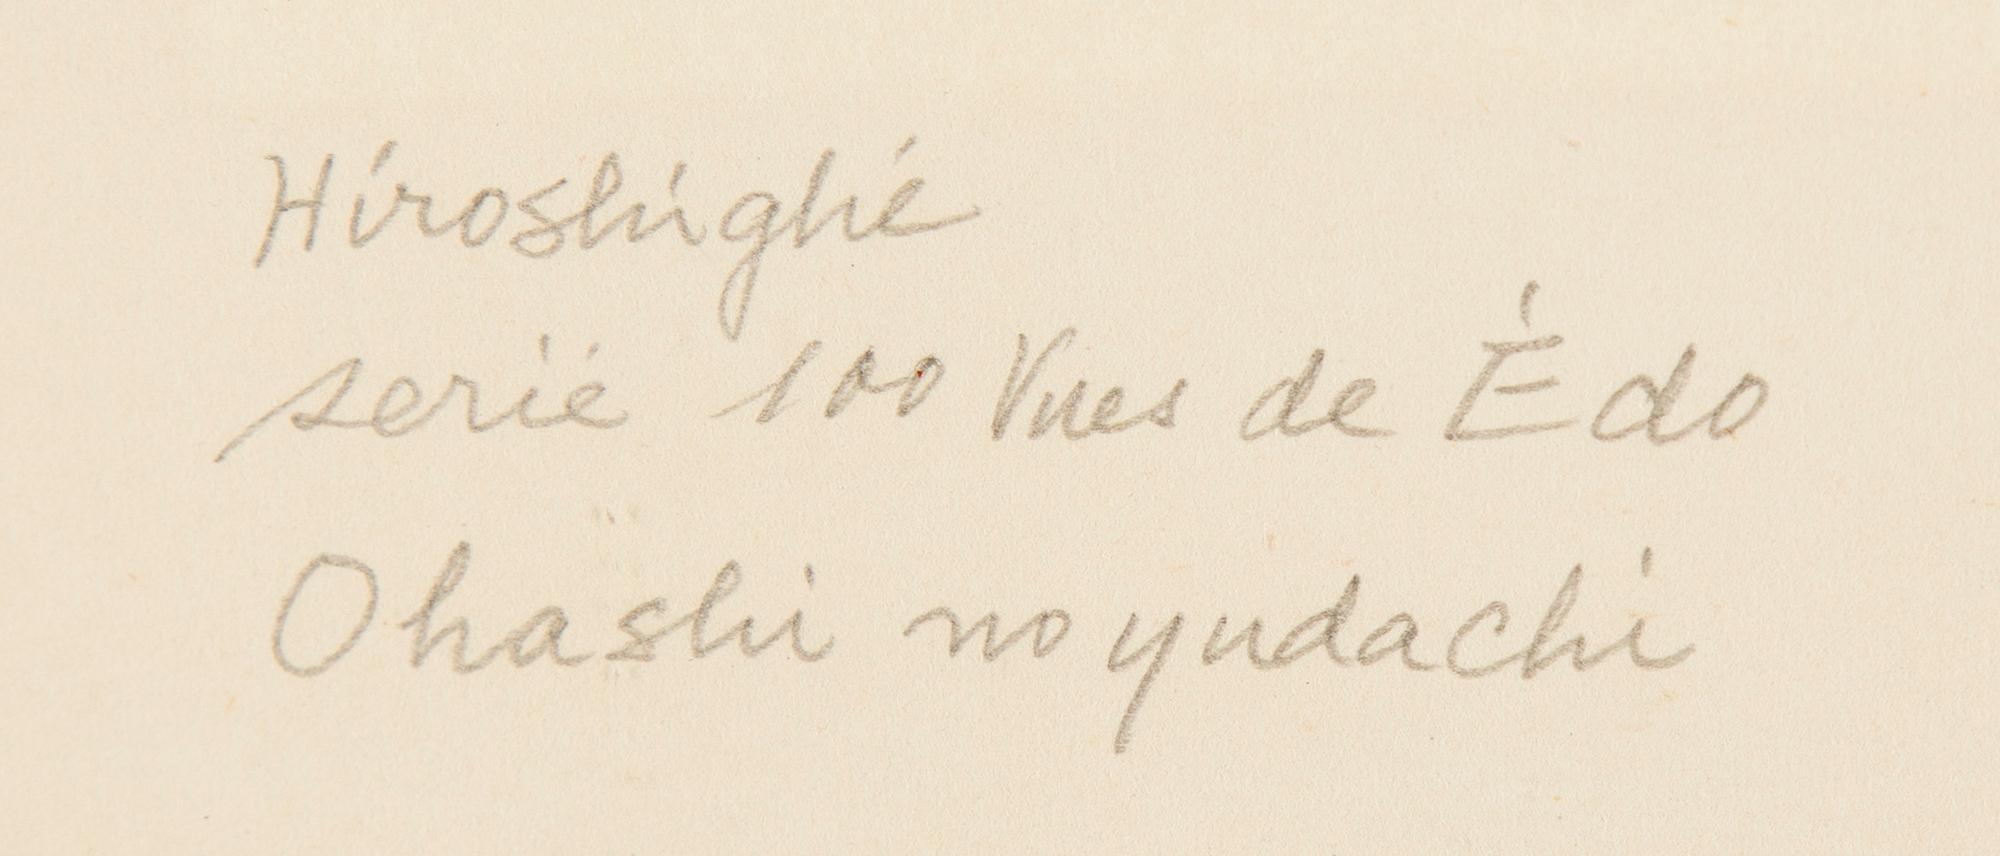 Hiroshighé
serié 100 Vues de Édo
Ohashi no yudachi